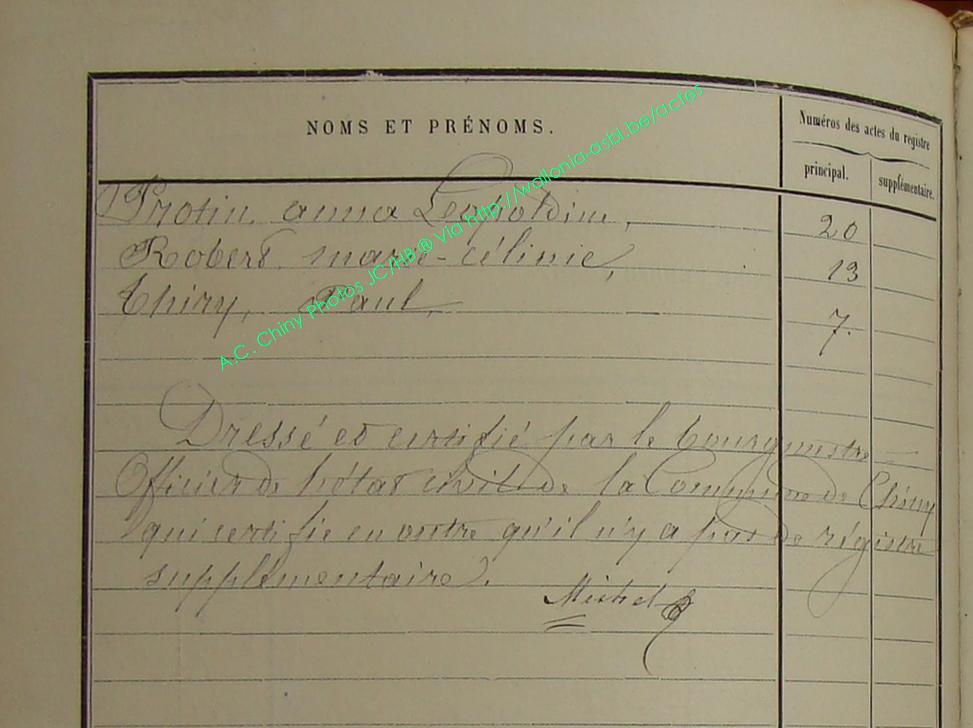 NOMS ET PRÉNOMS.
Numéros des actes du registre
principal.
supplémentaire.
Protin anna Léopoldine, 20
Robert marie-célinie, 13
Thiry, Paul, 7.
Dressé et certifié par le bourgmestre
Officier de l'état civil de la Commune de Chiny
qui certifie en outre qu'il n'y a pas de régistre
supplémentaire.
Michel
A.C. Chiny Photos JC/HB ® Via http://wallonia-asbl.be/actes